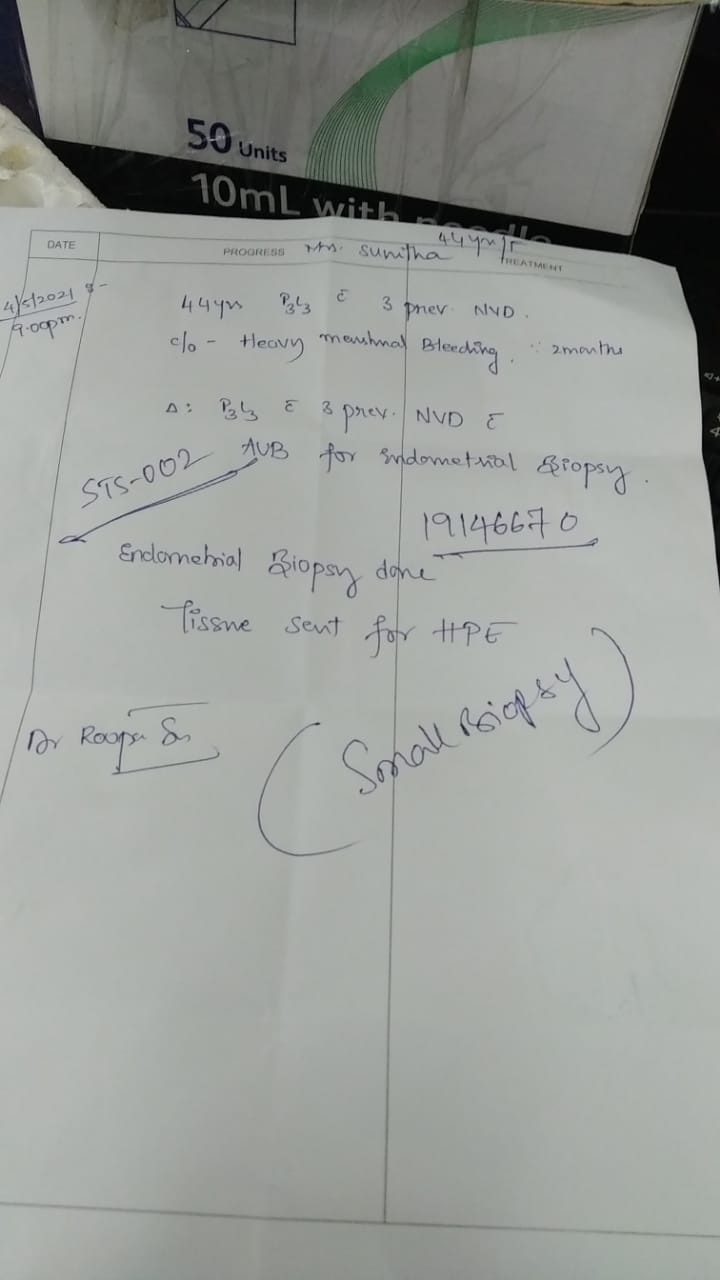 50 Units
10mL with needle
DATE PROGRESS Mrs. Sunitha 44yrs/F TREATMENT
4/5/2021 :-
9.00pm.
44yrs P3L3 c̄ 3 prev. NVD.
c/o - Heavy menstrual Bleeding. ∵ 2months
Δ: P3L3 c̄ 3 prev. NVD c̄
AUB for Endometrial Biopsy.
STS-002
19146670
Endometrial Biopsy done
Tissue sent for HPE
(Small Biopsy)
Dr Roopa